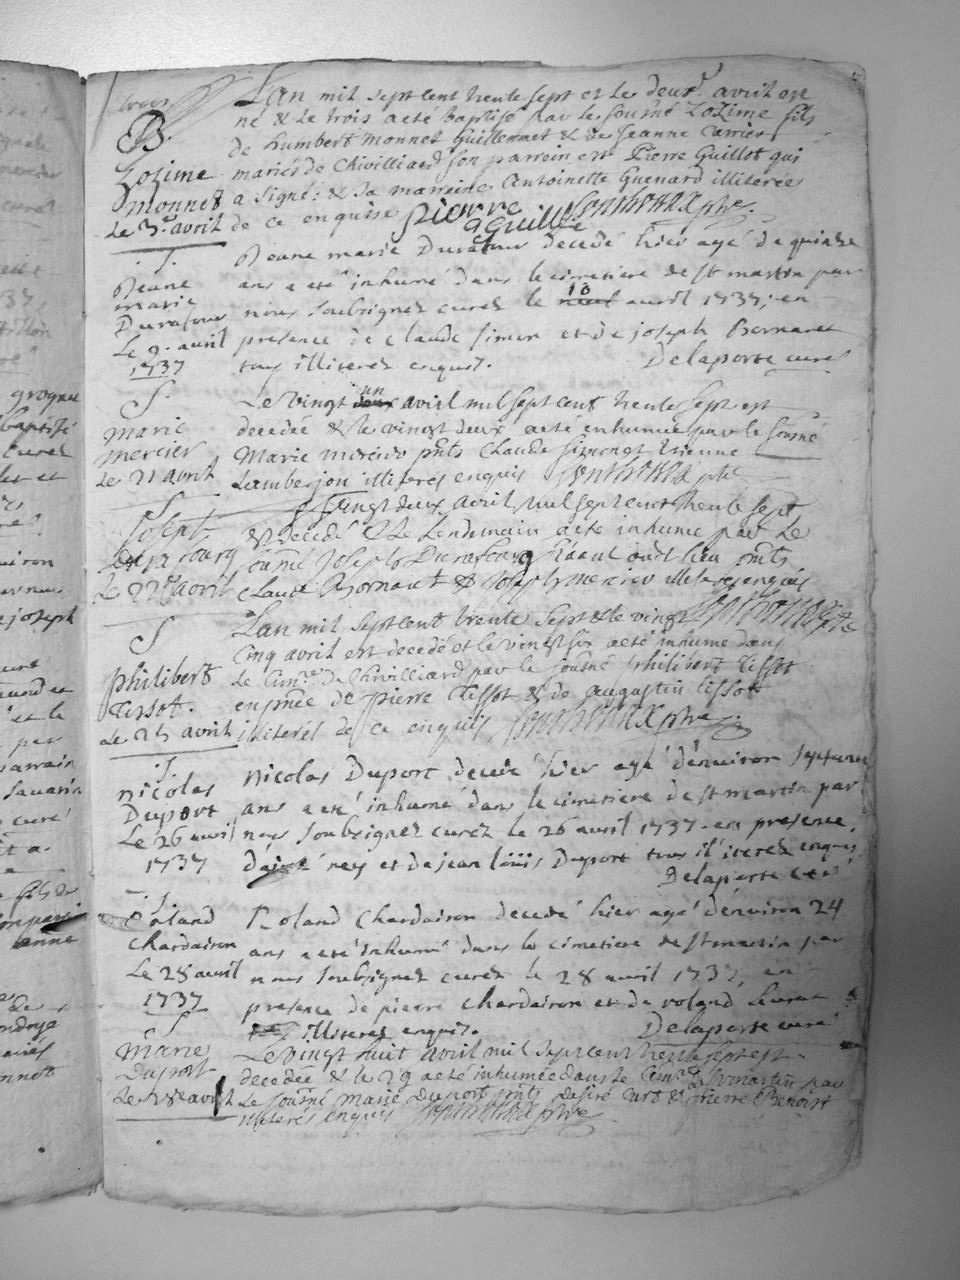 B.
Zozime
Monnet
Le 3e. avril
Lan mil sept cent trente sept et le deuxe avril est
né & le trois a eté baptisé par le sousné Zozime fils
de humbert monnet Guillemet & de Jeanne
mariés de Chivilliard son parrein est Pierre Guillot qui
a signé : & sa marreine Antoinette Guenard illiterée
de ce enquise pierre Guillot
J.
Jeanne
marie
Durafour
Le 9. avril
1737
Jeanne marie Durafour decedé hier agé de quinze
ans a eté inhumé dans le cimetiere de st martin par
nous soubsignez curez le 10 avril 1737, en
presence de claude simon et de joseph Bornaret
tous illiterez enquis. Delaporte curé
S.
Marie
mercier
Le 21 avril
Le vingt un avril mil sept cent trente sept est
decedée & le vingt deux a eté enhumée par le sousné
Marie mercier pnts Claude
Lamberjon illiterés enquis
S
Joseph
Le 22e. avril
vingt deux avril mil sept cent trente sept
est decedé & Le Lendemain a eté inhumé par Le
sousné Joseph Durafourg
Claude Bornaret & Joseph mercier illiterés enquis
S
philibert
Tissot.
Le 25 avril
Lan mil sept cent trente sept & le vingt
cinq avril est decedé et le vingt six a eté inhumé dans
Le cimre. de Chivilliard par le sousné philibert Tissot
en pnce de pierre Tissot & de augustin Tissot
illiterés de ce enquis
J.
nicolas
Duport
Le 26 avril
1737
nicolas Duport decedé hier agé d'environ septente
ans a eté inhumé dans le cimetiere de st martin par
nous soubsignez curez le 26 avril 1737. en presence
ney et de jean louis Duport tous illiterez enquis
Delaporte curé
J.
Roland
Chardairon
Le 28 avril
1737
Roland Chardairon decedé hier agé d'environ 24
ans a eté inhumé dans le cimetiere de st martin par
nous soubsignez curez le 28 avril 1737, en
presence de pierre Chardairon et de roland
illiterez enquis. Delaporte curé
S
Marie
Duport
Le 28 avril
Le vingt huit avril mil sept cent trente sept est
decedée & le 29 a eté inhumée dans le cimre de st martin par
Le sousné marie Duport pnts & pierre Benoist
illiterés enquis